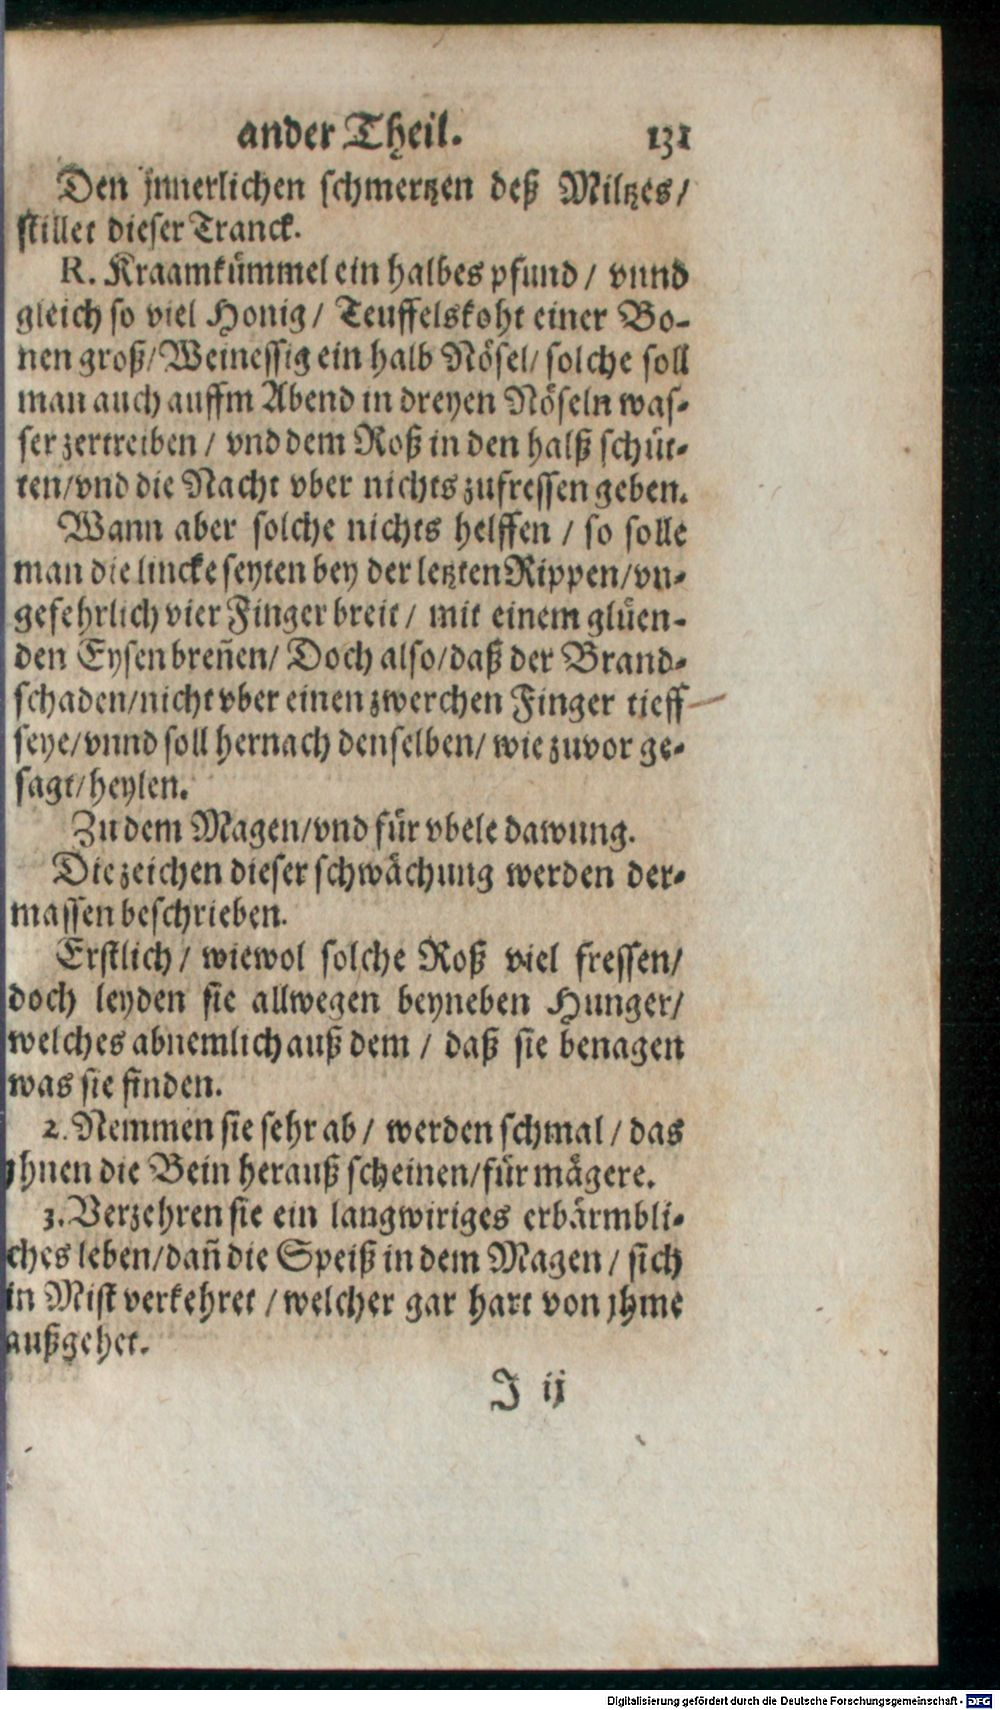 ander Theil. 131
Den jnnerlichen schmertzen deß Miltzes/
stillet dieser Tranck.
R. Kraamkümmel ein halbes pfund / vnnd
gleich so viel Honig / Teuffelskoht einer Bo-
nen groß / Weinessig ein halb Nösel / solche soll
man auch auffm Abend in dreyen Nöseln was-
ser zertreiben / vnd dem Roß in den halß schüt-
ten/vnd die Nacht vber nichts zufressen geben.
Wann aber solche nichts helffen / so solle
man die lincke seyten bey der letzten Rippen/vn-
gefehrlich vier Finger breit / mit einem glüen-
den Eysen breñen/ Doch also/daß der Brand-
schaden/nicht vber einen zwerchen Finger tieff
seye/vnnd soll hernach denselben/ wie zuvor ge-
sagt/heylen.
Zu dem Magen/vnd für vbele dawung.
Die zeichen dieser schwächung werden der-
massen beschrieben.
Erstlich / wiewol solche Roß viel fressen/
doch leyden sie allwegen beyneben Hunger/
welches abnemlich auß dem / daß sie benagen
was sie finden.
2. Nemmen sie sehr ab / werden schmal / das
jhnen die Bein herauß scheinen/für mägere.
3. Verzehren sie ein langwiriges erbärmbli-
ches leben/dañ die Speiß in dem Magen / sich
in Mist verkehret / welcher gar hart von jhme
außgehet.
J ij
Digitalisierung gefördert durch die Deutsche Forschungsgemeinschaft - DFG